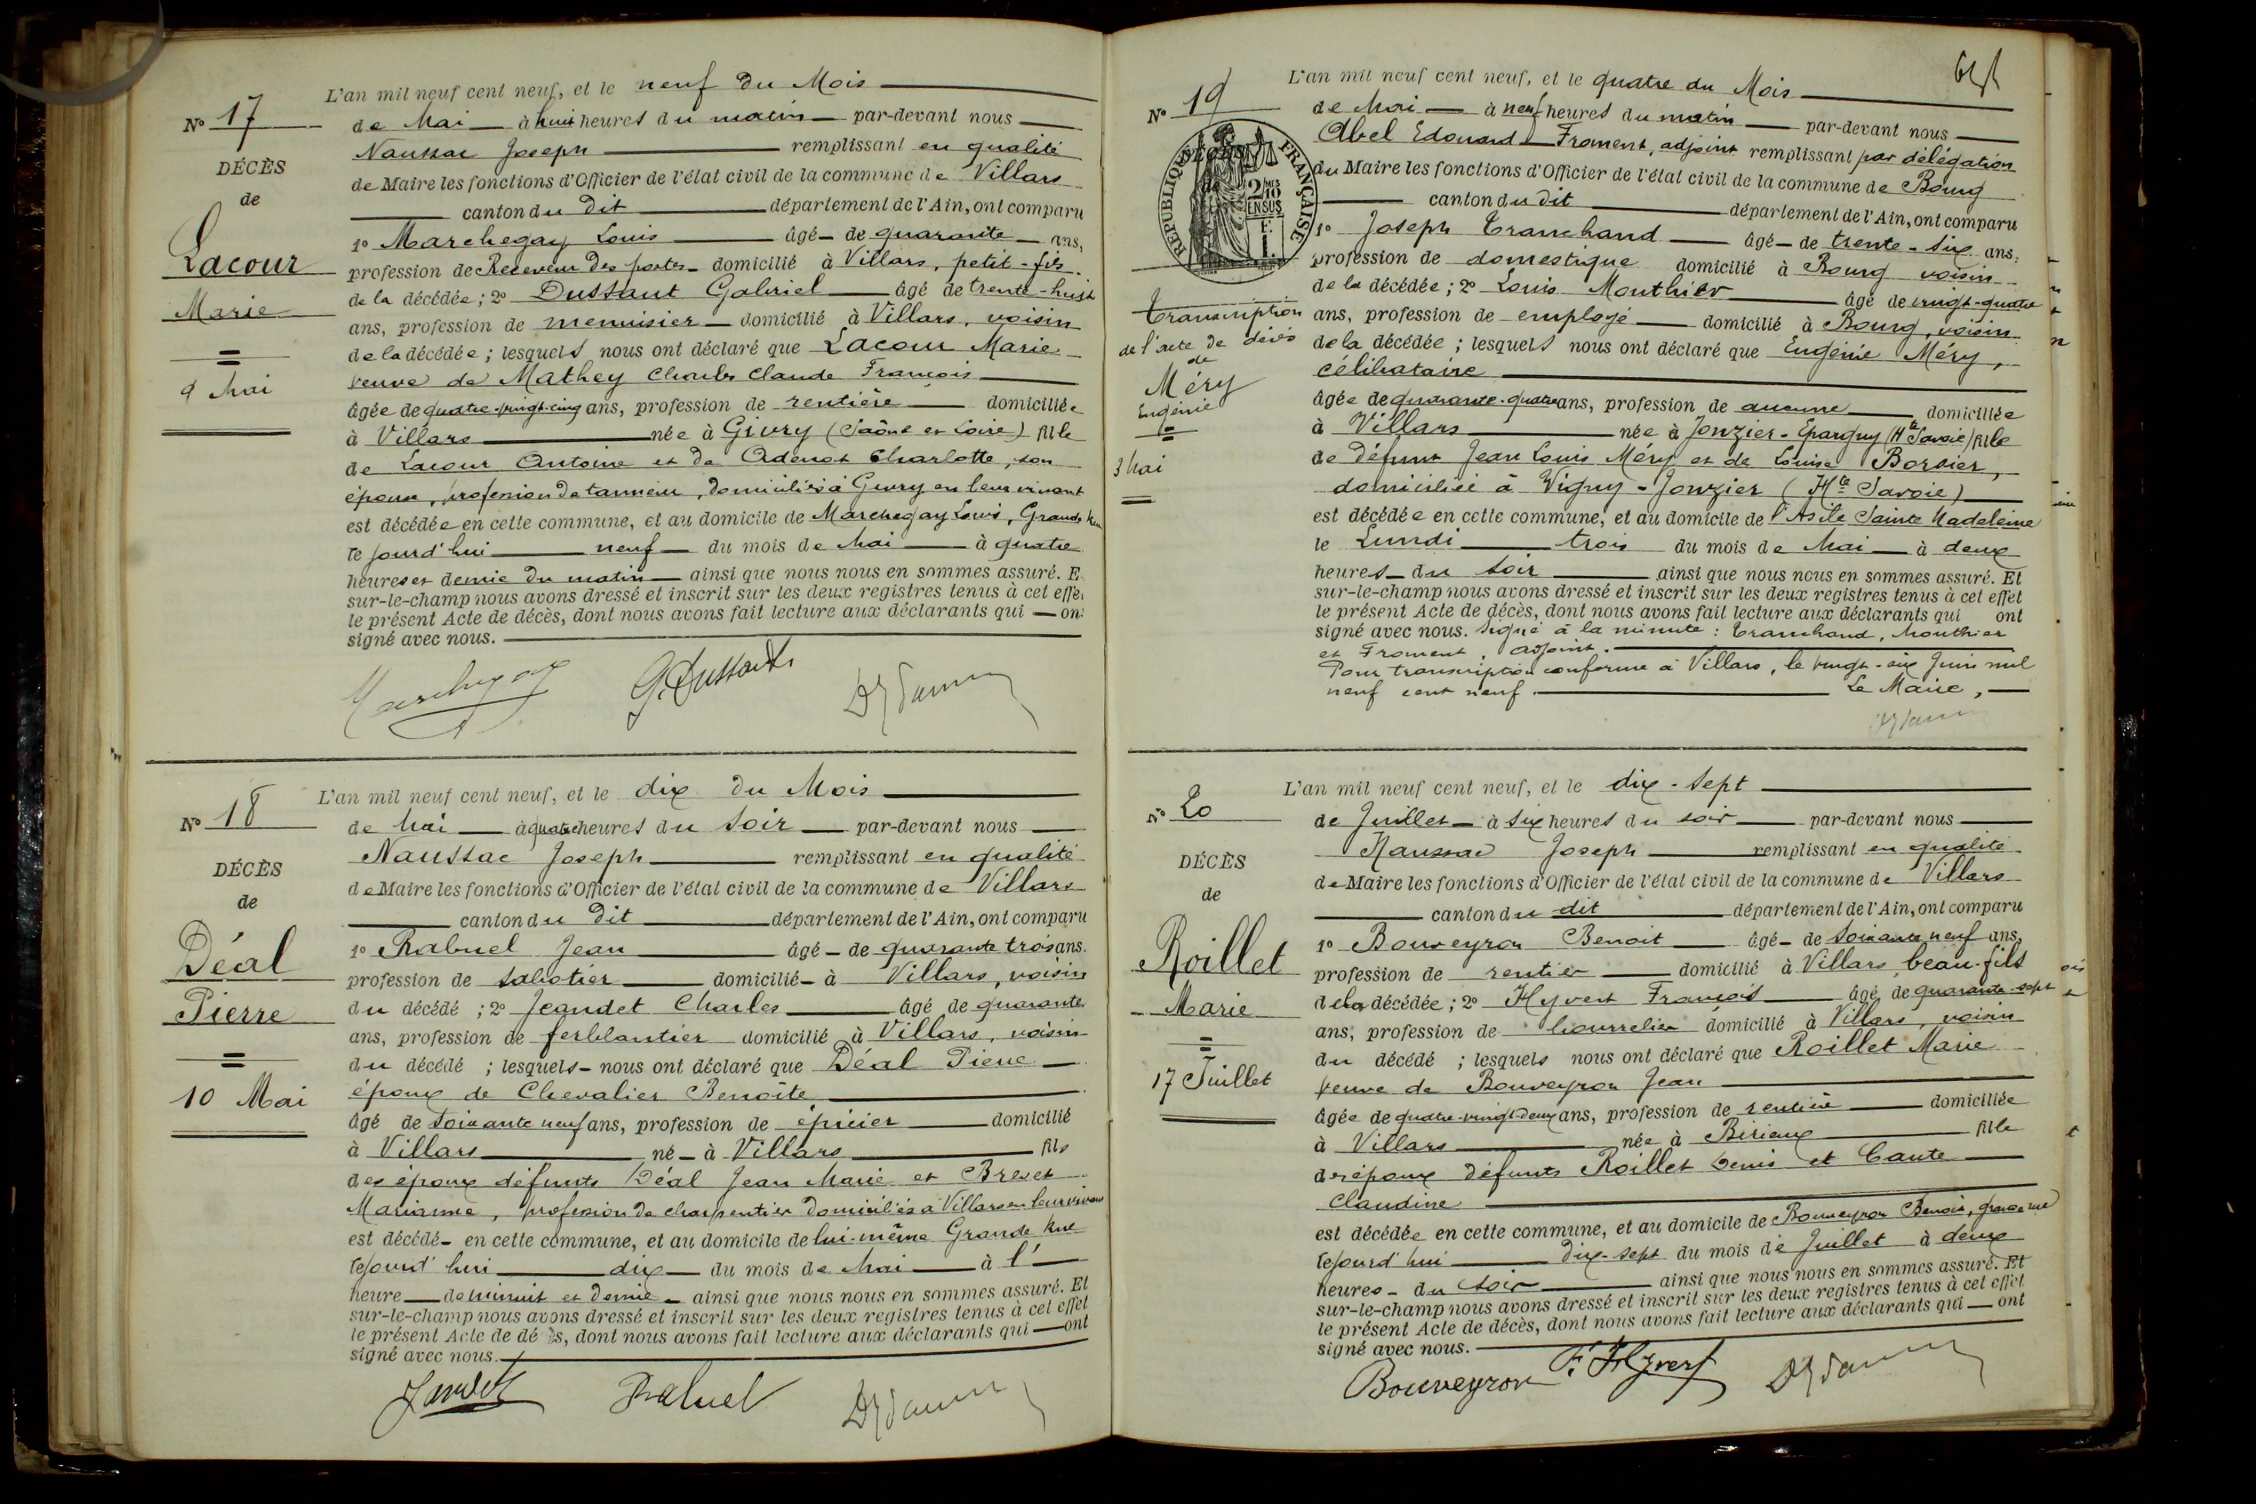 L'an mil neuf cent neuf, et le neuf du Mois
No 17
de Mai à huit heures du matin par-devant nous
Naussac Joseph remplissant en qualité
DÉCÈS
de Maire les fonctions d'Officier de l'état civil de la commune de Villars
de
canton du dit département de l'Ain, ont comparu
1º Marchegay Louis âgé de quarante ans,
Lacour
profession de Receveur des postes domicilié à Villars, petit-fils
de la décédée; 2º Dussaut Gabriel âgé de trente-huit
Marie
ans, profession de menuisier domicilié à Villars, voisin
de la décédée; lesquels nous ont déclaré que Lacour Marie
veuve de Mathey Charles Claude François
9 Mai
âgée de quatre-vingt-cinq ans, profession de rentière domiciliée
à Villars née à Givry (Saône et Loire) fille
de Lacour Antoine et de Adenot Charlotte, son
épouse, profession de tanneur, domiciliés à Givry en leur vivant
est décédée en cette commune, et au domicile de Marchegay Louis, Grande Rue
lejourd'hui neuf du mois de Mai à quatre
heures et demie du matin ainsi que nous nous en sommes assuré. E
sur-le-champ nous avons dressé et inscrit sur les deux registres tenus à cet effe
le présent Acte de décès, dont nous avons fait lecture aux déclarants qui on
signé avec nous.
Marchegay G. Dussaut
L'an mil neuf cent neuf, et le dix du Mois
No 18
de Mai à quatre heures du soir par-devant nous
Naussac Joseph remplissant en qualité
DÉCÈS
de Maire les fonctions d'Officier de l'état civil de la commune de Villars
de
canton du dit département de l'Ain, ont comparu
1º Rabuel Jean âgé de quarante trois ans.
Déal
profession de sabotier domicilié à Villars, voisin
du décédé; 2º Jeandet Charles âgé de quarante
Pierre
ans, profession de ferblantier domicilié à Villars, voisin
du décédé; lesquels nous ont déclaré que Déal Pierre
10 Mai
époux de Chevalier Benoîte
âgé de soixante neuf ans, profession de épicier domicilié
à Villars né à Villars fils
des époux défunts Déal Jean Marie et Brevet
Marianne, profession de charpentier domiciliés à Villars en leur vivant
est décédé en cette commune, et au domicile de lui-même Grande Rue
lejourd'hui dix du mois de Mai à l'
heure de minuit et demie ainsi que nous nous en sommes assuré. Et
sur-le-champ nous avons dressé et inscrit sur les deux registres tenus à cet effet
le présent Acte de dé s, dont nous avons fait lecture aux déclarants qui ont
signé avec nous.
Jandet Rabuel
L'an mil neuf cent neuf, et le quatre du Mois
No 19
de Mai à neuf heures du matin par-devant nous
Abel Edouard Froment, adjoint remplissant par délégation
DÉCÈS
RÉPUBLIQUE FRANÇAISE
2/10 EN SUS
du Maire les fonctions d'Officier de l'état civil de la commune de Bourg
canton du dit département de l'Ain, ont comparu
1º Joseph Tranchand âgé de trente-six ans,
profession de domestique domicilié à Bourg voisin
de la décédée; 2º Louis Monthier âgé de vingt-quatre
Transcription
ans, profession de employé domicilié à Bourg, voisin
de l'acte de décès
de la décédée; lesquels nous ont déclaré que Eugénie Méry,
de
célibataire
Méry
Eugénie
âgée de quarante-quatre ans, profession de aucune domiciliée
à Villars née à Jonzier-Epargny (Hte Savoie) fille
3 Mai
de défunt Jean Louis Méry et de Louise Borsier,
domiciliée à Vigny-Jonzier (Hte Savoie)
est décédée en cette commune, et au domicile de l'Asile Sainte Madeleine
le Lundi trois du mois de Mai à deux
heures du soir ainsi que nous nous en sommes assuré. Et
sur-le-champ nous avons dressé et inscrit sur les deux registres tenus à cet effet
le présent Acte de décès, dont nous avons fait lecture aux déclarants qui ont
signé avec nous. Signé à la minute: Tranchand, Monthier
et Froment, adjoint.
Pour transcription conforme à Villars, le vingt-six Juin mil
neuf cent neuf. Le Maire,
L'an mil neuf cent neuf, et le dix-sept
No 20
de Juillet à six heures du soir par-devant nous
Naussac Joseph remplissant en qualité
DÉCÈS
de Maire les fonctions d'Officier de l'état civil de la commune de Villars
de
canton du dit département de l'Ain, ont comparu
1º Bouveyron Benoit âgé de soixante neuf ans,
Roillet
profession de rentier domicilié à Villars, beau-fils
de la décédée; 2º Hyvert François âgé de quarante-sept
Marie
ans, profession de bourrelier domicilié à Villars, voisin
du décédé; lesquels nous ont déclaré que Roillet Marie
17 Juillet
veuve de Bouveyron Jean
âgée de quatre-vingt-deux ans, profession de rentière domiciliée
à Villars née à Birieux fille
des époux défunts Roillet Denis et Caute
Claudine
est décédée en cette commune, et au domicile de Bouveyron Benoit, grande rue
lejourd'hui dix-sept du mois de Juillet à deux
heures du soir ainsi que nous nous en sommes assuré. Et
sur-le-champ nous avons dressé et inscrit sur les deux registres tenus à cet effet
le présent Acte de décès, dont nous avons fait lecture aux déclarants qui ont
signé avec nous.
Bouveyron F. Hyvert